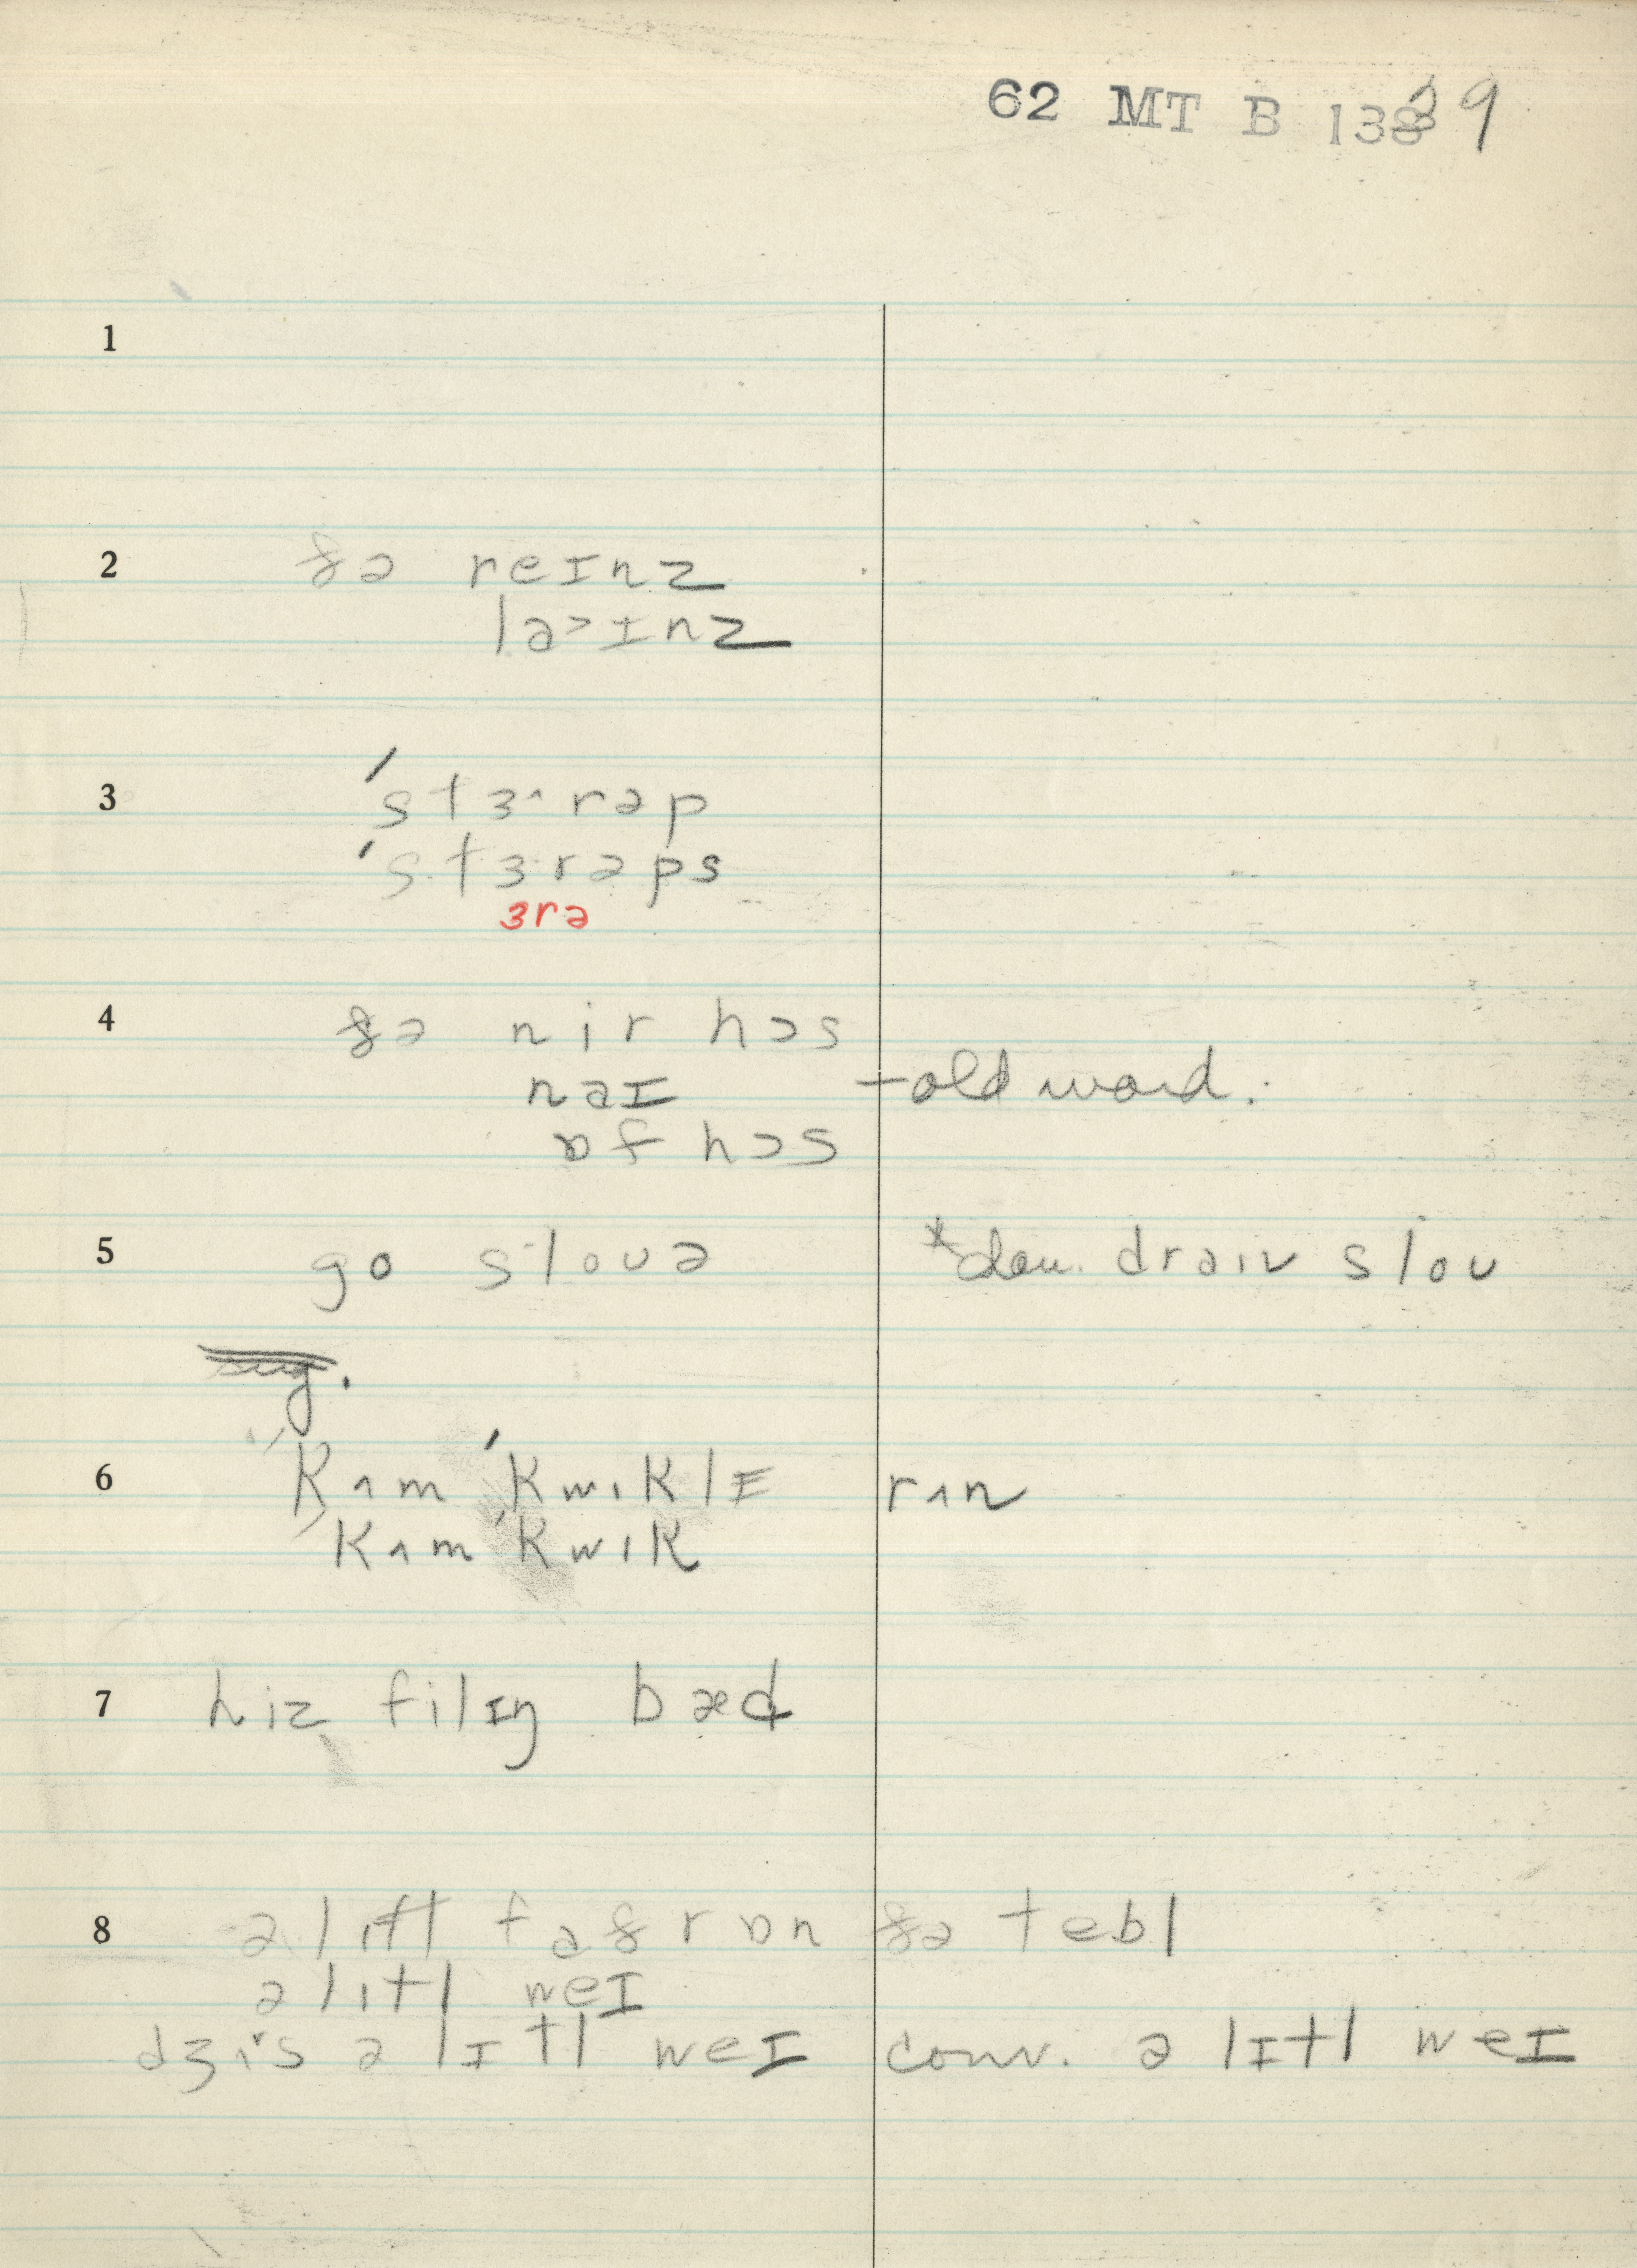 62 MT B 1339
1
2 ðə reɪnz
laɪnz
3 ˈstɜ^rəp
ˈstɜ·rəps
ɜrə
4 ðə nir hɔs
naɪ – old word.
ɒf hɔs
5 go sloʊə * draiv sloʊ
6 ˈkʌm ˈkwɪklɪ rʌn
ˈkʌm ˈkwɪk
7 hiz filɪŋ bæd
8 ə lɪtl faðr ɒn ðə tebl
ə lɪtl weɪ
dʒʌs ə lɪtl weɪ conv. ə lɪtl weɪ